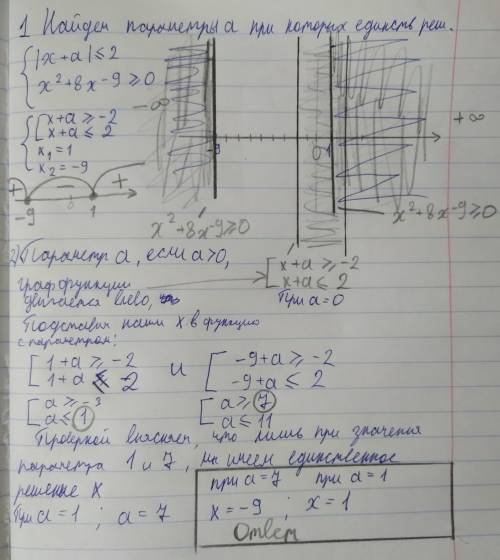 1 Найдём параметры a при которых единств реш.
|x+a| ≤ 2
x²+8x-9 ≥ 0
-∞
+∞
x+a ≥ -2
x+a ≤ 2
x₁ = 1
x₂ = -9
-9 0 1
+ - +
-9 1
x²+8x-9≥0
x²+8x-9≥0
2) Параметр a, если a>0,
граф функции
двигается влево,
x+a ≥ -2
x+a ≤ 2
При a=0
Подставим наши x в функцию
с параметром:
1+a ≥ -2
1+a ≤ 2
и
-9+a ≥ -2
-9+a ≤ 2
a ≥ -3
a ≤ 1
a ≥ 7
a ≤ 11
Проверкой выясняем, что лишь при значения
параметра 1 и 7, мы имеем единственное
решение x
При a=1 ; a=7
при a=7 при a=1
x=-9 ; x=1
Ответ